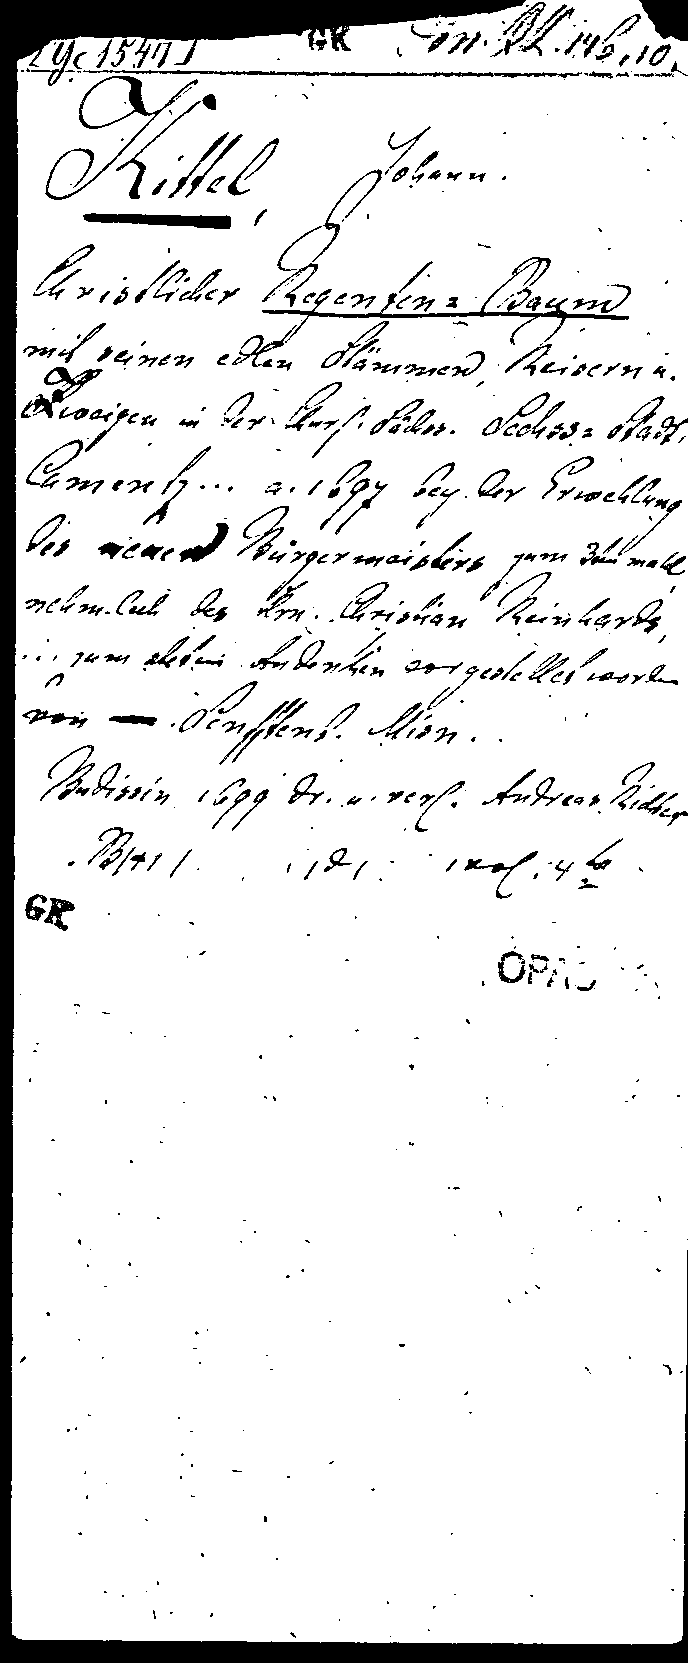 [Yc 1547] GK on. 146, 10.
Kittel, Johann.
Christlicher Regenten= Baum
mit seinen edlen Stämmen, Reisern u.
Zweigen in der Churf. Sächs. Sechss= Stadt,
Camentz... a. 1697 bey der Erwehlung
des neuen Bürgermeisters zum 3ten mahl
nehmlich des Hrn. Christian Reinhards,
... zum Andenken vorgestellet worden
von — Senfftenb. Misn.
Budissin 1699 dr. u. verl. Andreas Richter
4to
GK
OPAC